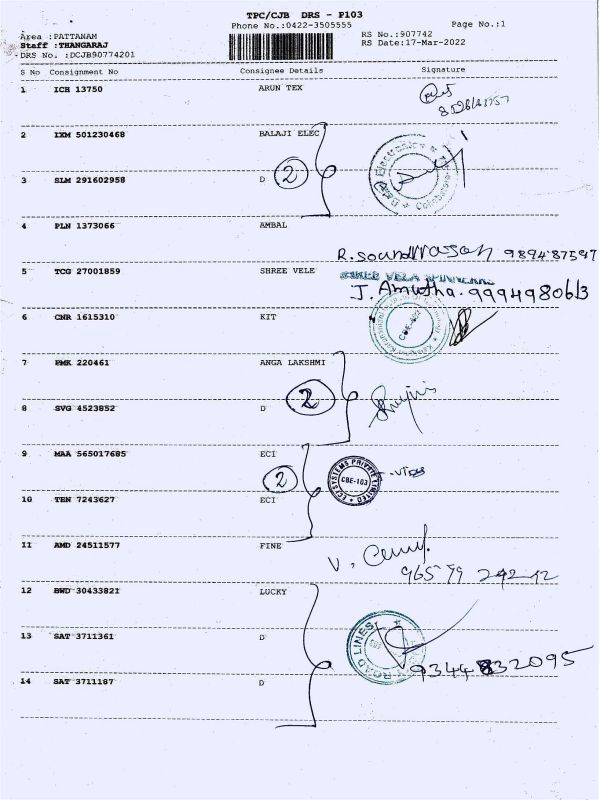 TPC/CJB DRS - P103
Phone No.:0422-3505555
Page No.:1
Area :PATTANAM
RS No.:907742
Staff :THANGARAJ
RS Date:17-Mar-2022
DRS No. :DCJB90774201
S No Consignment No Consignee Details Signature
1 ICH 13750 ARUN TEX
2 IXM 501230468 BALAJI ELEC
3 SLM 291602958 D 2
4 PLN 1373066 AMBAL
R. Soundrrajan 9894187597
5 TCG 27001859 SHREE VELE
SHREE VELA SPINNERS
J. Amutha. 9994980613
6 CNR 1615310 KIT
7 PMK 220461 ANGA LAKSHMI
2
8 SVG 4523852 D
9 MAA 565017685 ECI
2 ECI SYSTEMS PRIVATE LIMITED CBE-103
10 TEN 7243627 ECI
11 AMD 24511577 FINE
965 79 242 12
12 BWD 30433821 LUCKY
13 SAT 3711361 D
ROAD LINES
9344832095
14 SAT 3711187 D